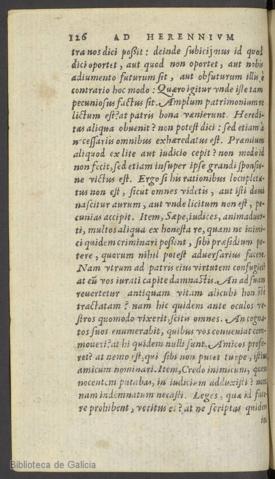 126 AD HERENNIVM
tra nos dici poßit: deinde subicimus id quod
dici oportet, aut quod non oportet, aut nobis
adiumento futurum sit, aut obfuturum illis è
contrario hoc modo: Quæro igitur vnde iste tam
pecuniosus factus sit. Amplum patrimonium re
lictum est? at patris bona vænierunt. Heredi-
tas aliqua obuenit? non potest dici: sed etiam à
necessariis omnibus exhæredatus est. Præmium
aliquod ex lite aut iudicio cepit? non modò id
non fecit, sed etiam insuper ipse grandi sponsio-
ne victus est. Ergo si his rationibus locupleta-
tus non est, sicut omnes videtis, aut isti domi
nascitur aurum, aut vnde licitum non est, pe-
cunias accipit. Item, Sæpe, iudices, animaduer-
ti, multos aliqua ex honesta re, quam ne inimi-
ci quidem criminari possint, sibi præsidium pe-
tere, quorum nihil potest aduersarius facere.
Nam vtrum ad patris eius virtutem confugiet?
at eū vos iurati capite damnastis. An ad suam
reuertetur antiquam vitam alicubi honestè
tractatam? nam hic quidem ante oculos ve-
stros quomodo vixerit, scitis omnes. An cogna-
tos suos enumerabit, quibus vos conueniat com-
moueri? at hi quidem nulli sunt. Amicos profe-
ret? at nemo est, qui sibi non putet turpe, istius
amicum nominari. Item, Credo inimicum, quem
nocentem putabas, in iudicium adduxisti? non:
nam indemnatum necasti. Leges, quæ id face-
re prohibent, veritus es? at ne scriptas quidem
Biblioteca de Galicia